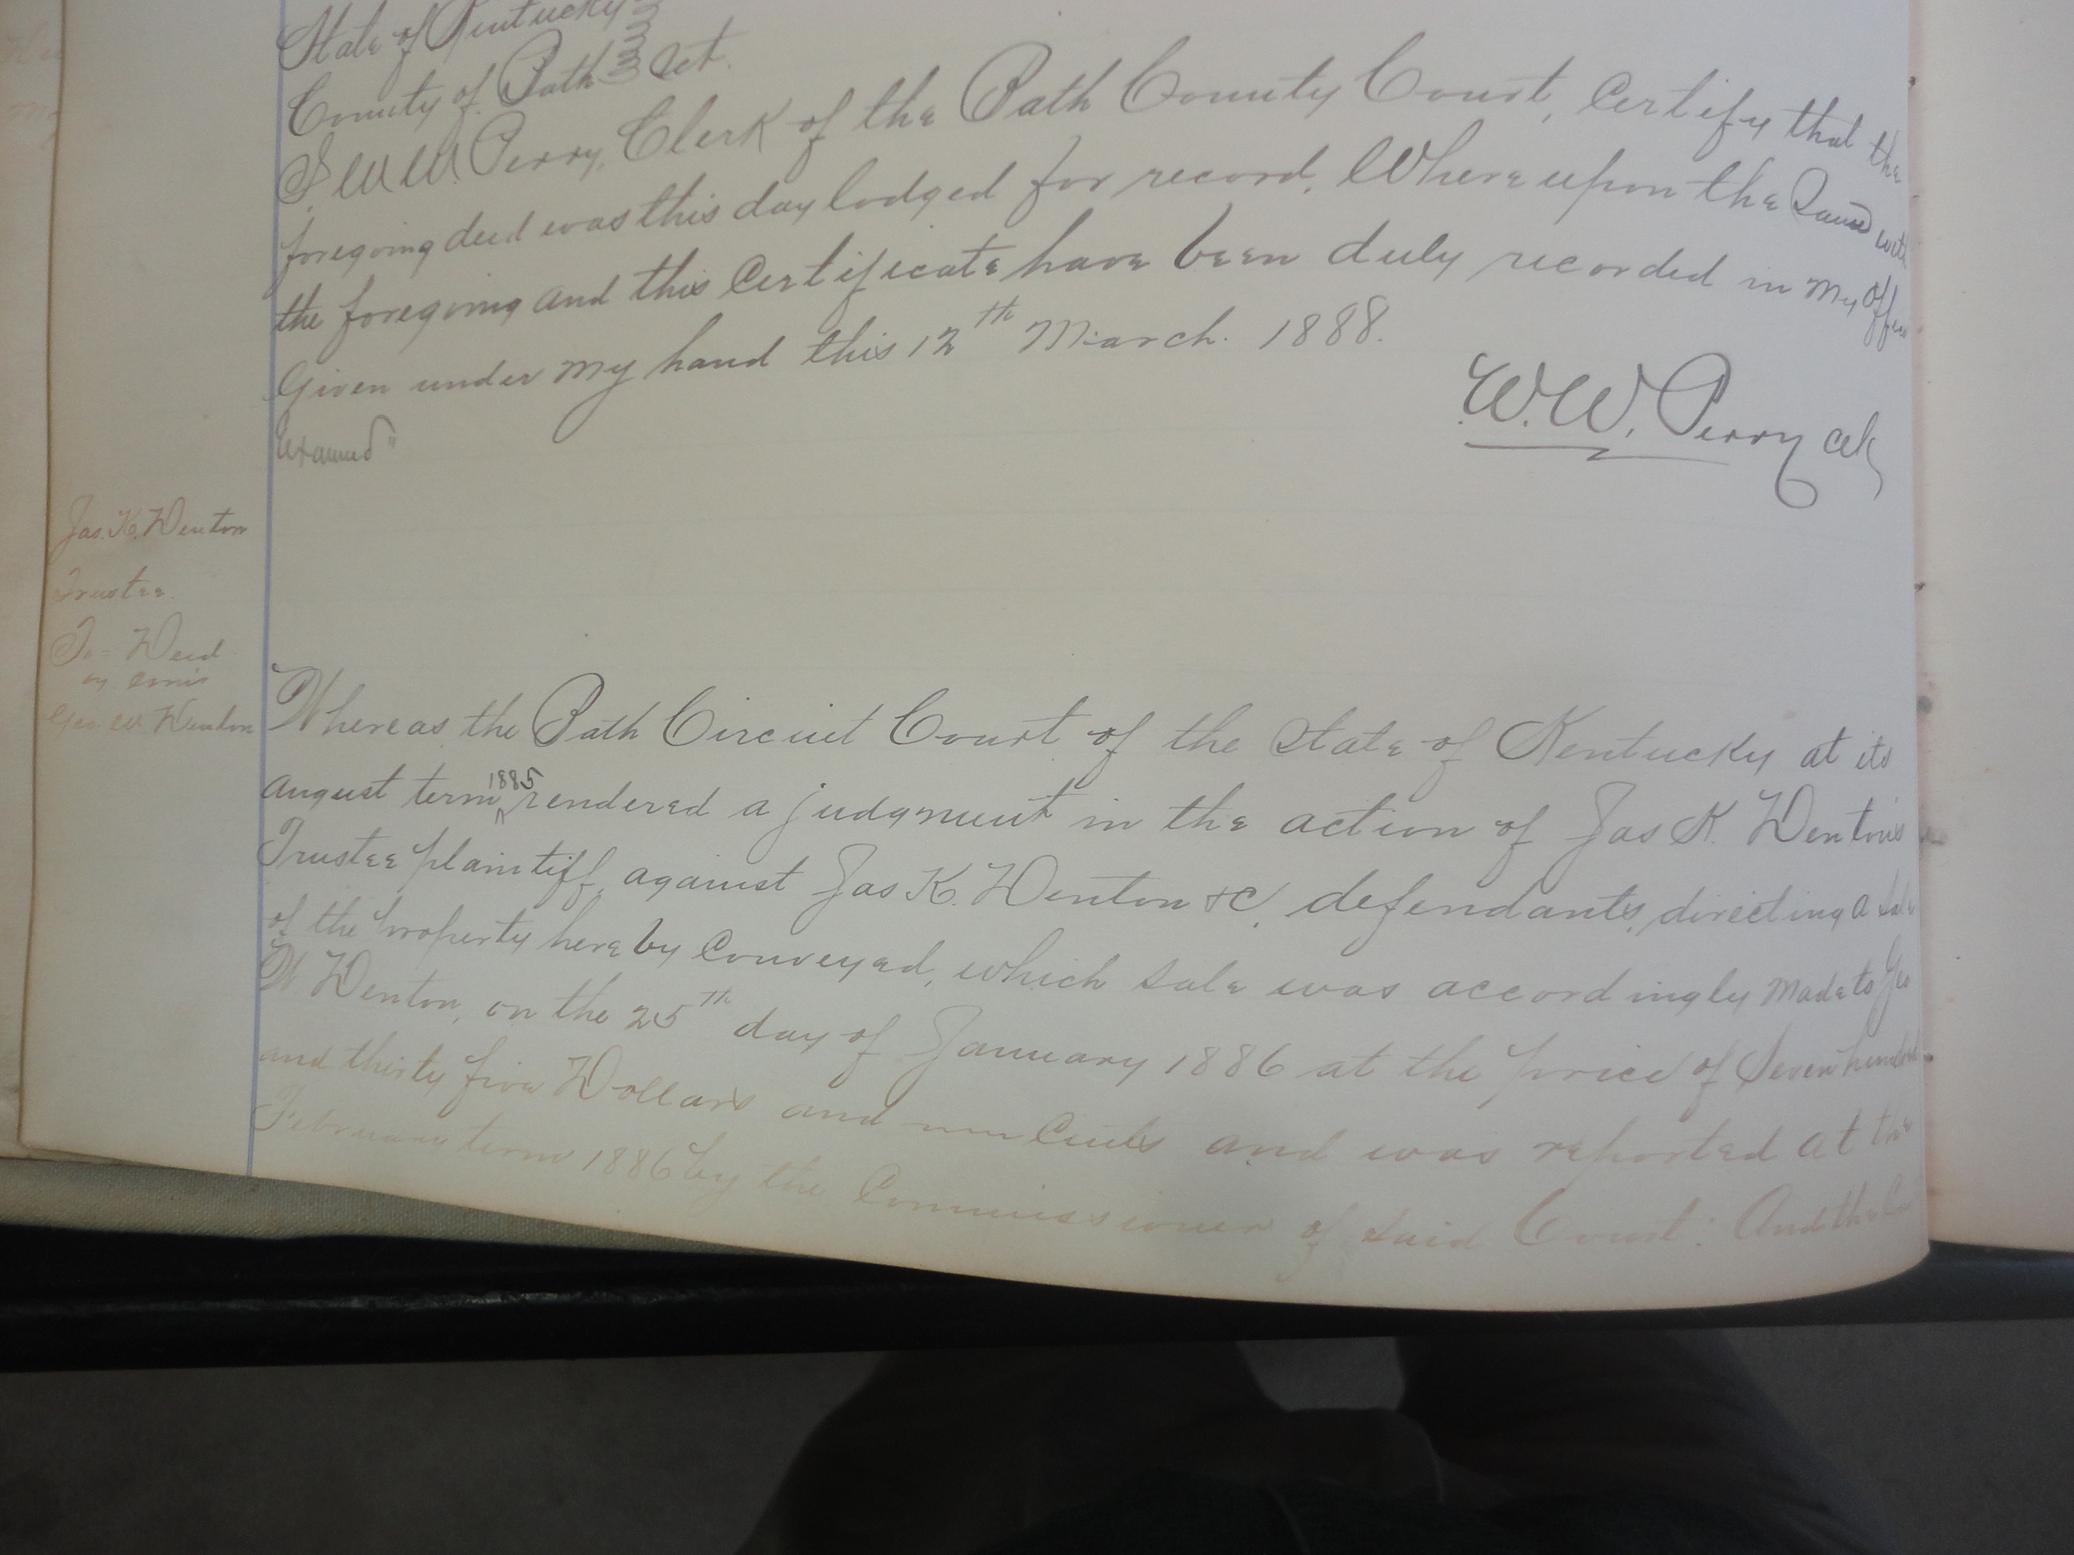 State of Kentucky
County of Bath Sct.
I. W.W. Perry, Clerk of the Bath County Court, Certify that the
foregoing deed was this day lodged for record. Whereupon the Same with
the foregoing and this Certificate have been duly recorded in my office
Given under my hand this 12th March. 1888.
W.W. Perry clk
Examined"
Jas. K. Denton
Trustee.
To = Deed
by comr
Geo. W. Denton
Whereas the Bath Circuit Court of the State of Kentucky at its
august term 1885 rendered a judgment in the action of Jas K. Denton's
Trustee plaintiff, against Jas K. Denton &C, defendants, directing a Sale
of the Property hereby Conveyed, which Sale was accordingly made to Geo
W Denton, on the 25th day of January 1886 at the price of Seven hundred
and thirty five Dollars and Cents and was reported at the
February term 1886 by the Commissioner of Said Court: And the